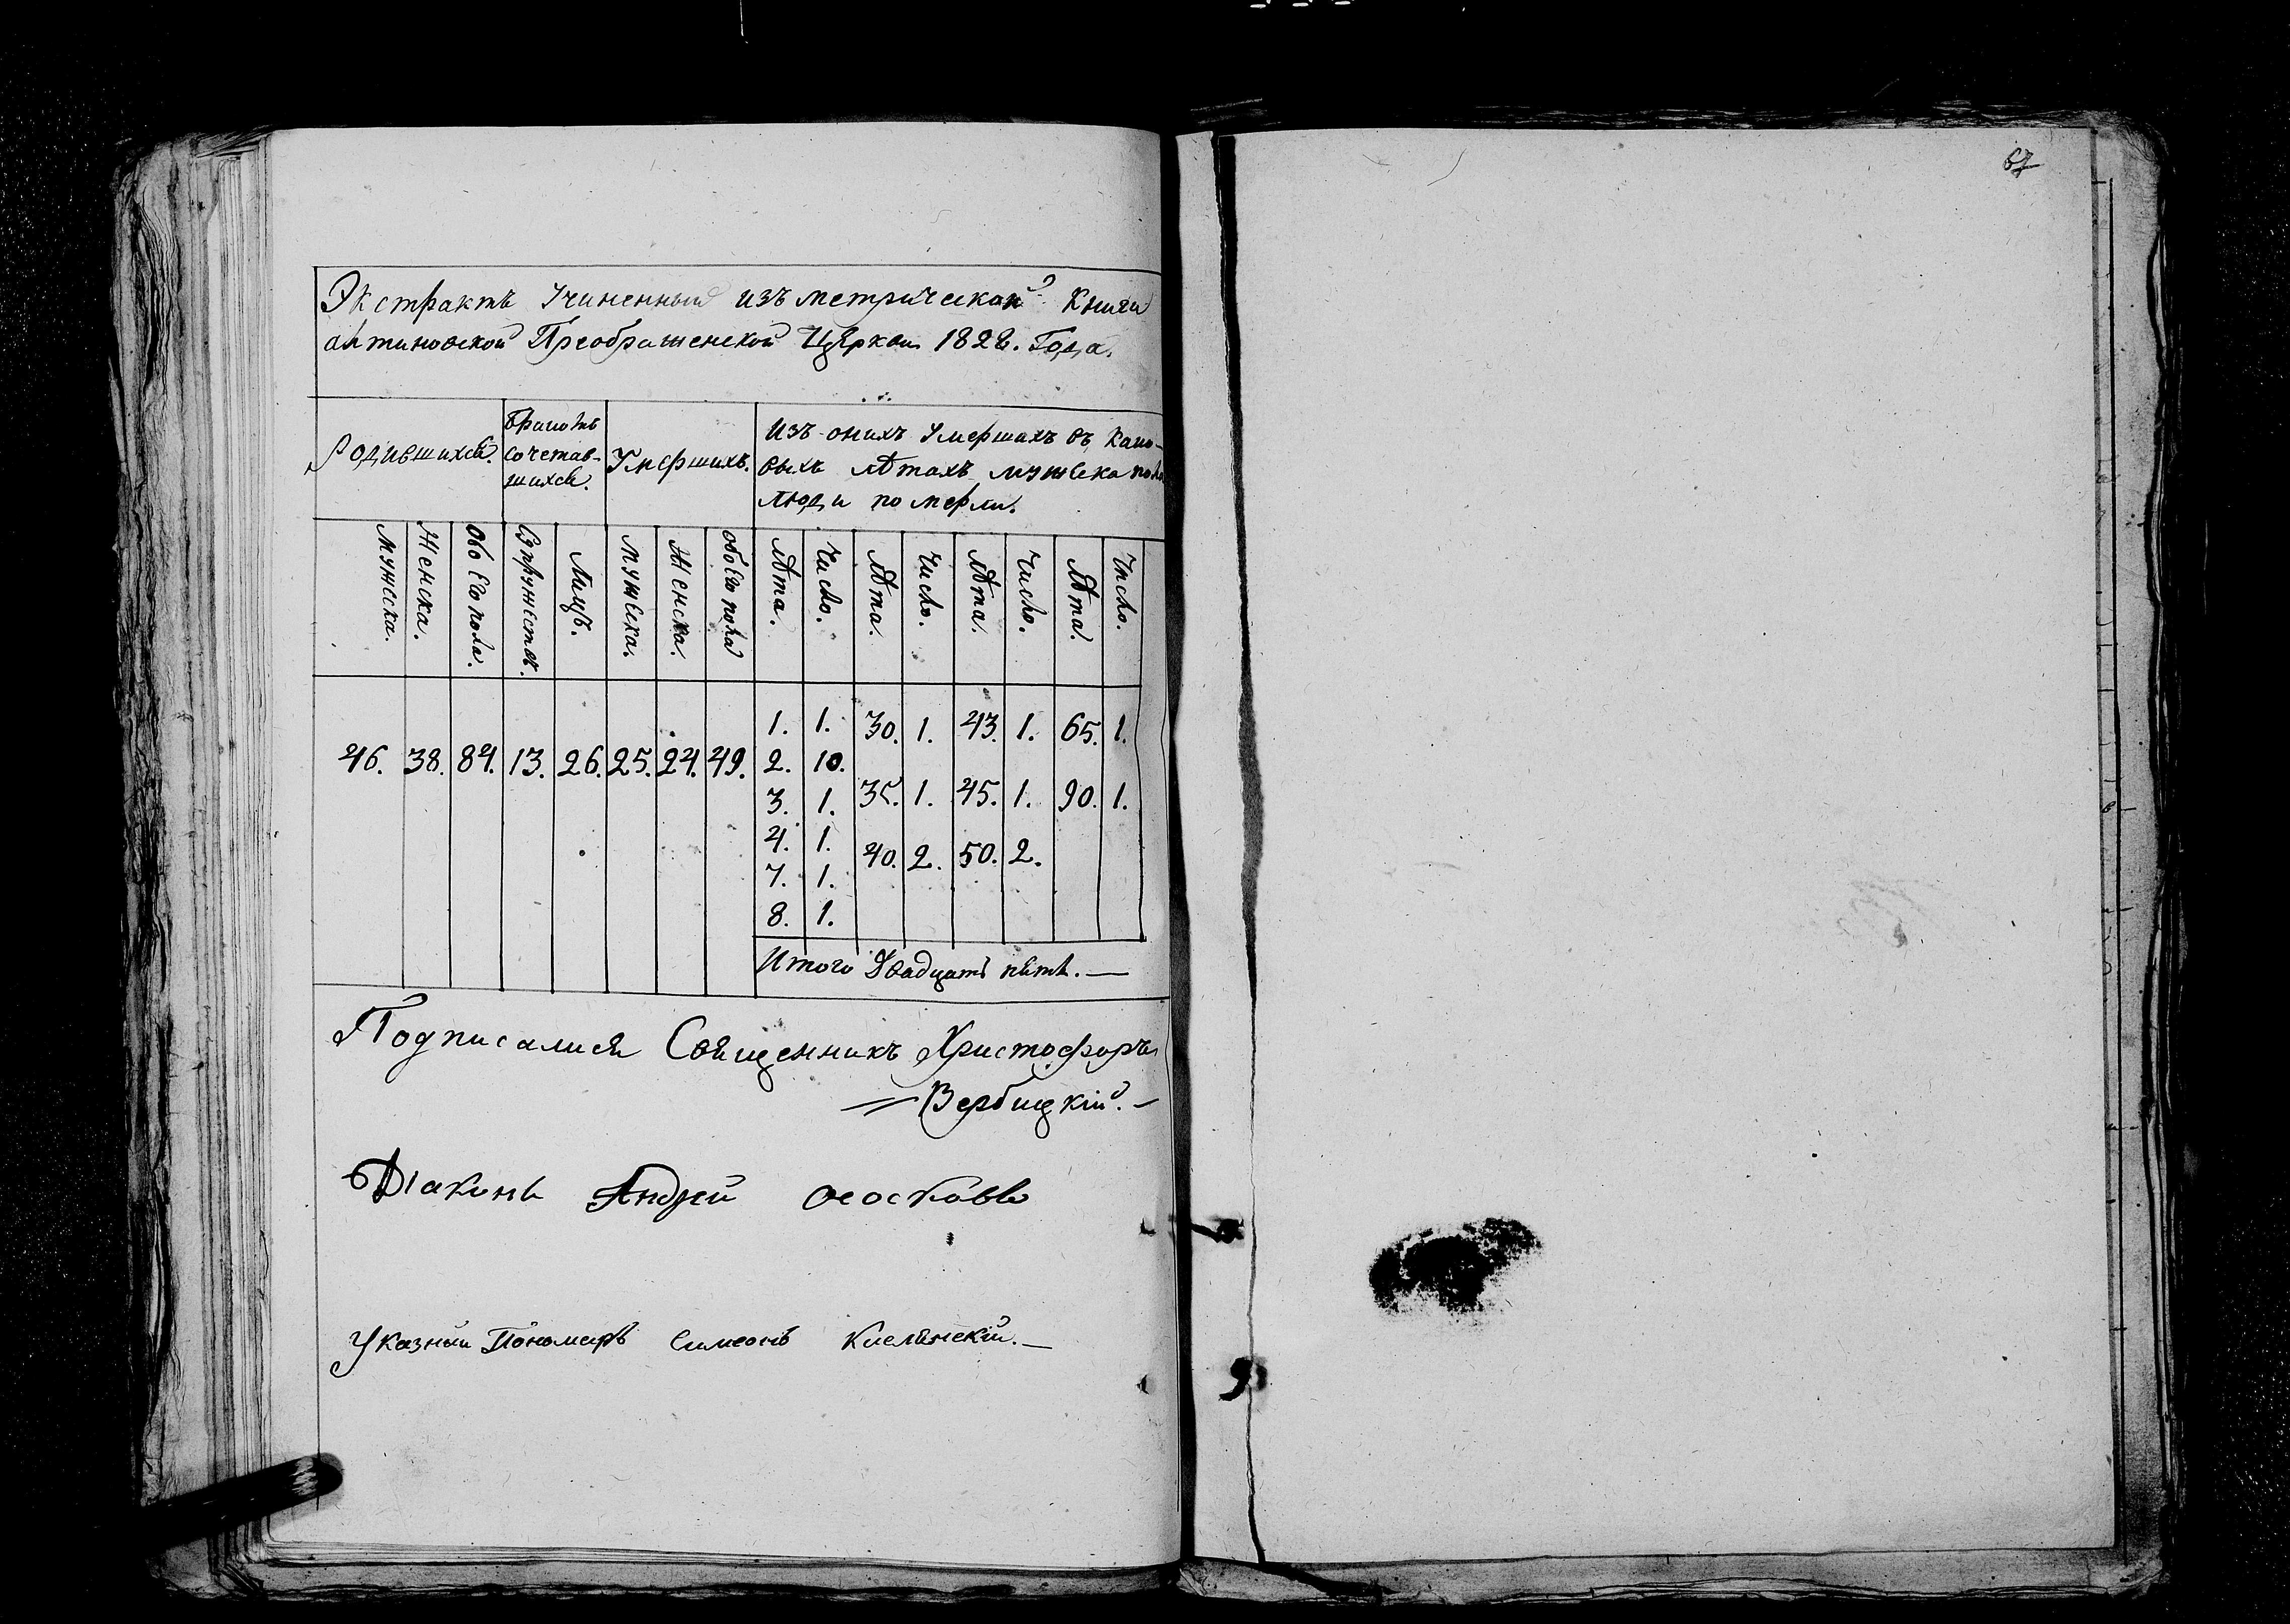 67
Экстрактъ Учиненный изъ метрической Книги
антиновской Преображенской Церкви 1828. Года.
Родившихся. Бракомъ сочетав-шихся. Умершихъ. Изъ оныхъ Умершихъ въ Како-
выхъ лѣтахъ мужеска пола
люди померли.
Мужеска. Женска. Обоего пола. Супружествъ. Лицъ. Мужеска. Женска. обоего пола Лѣта. Число. Лѣта. Число. Лѣта. Число. Лѣта. Число.
1. 1. 30. 1. 43. 1. 65. 1.
46. 38. 84. 13. 26. 25. 24. 49. 2. 10.
3. 1. 35. 1. 45. 1. 90. 1.
4. 1.
40. 2. 50. 2.
7. 1.
8. 1.
Итого Двадцать пять. —
Подписалися Священникъ Христофоръ
Вербицкій. —
Діаконъ Андрей
Указный Пономарь Симеонъ —